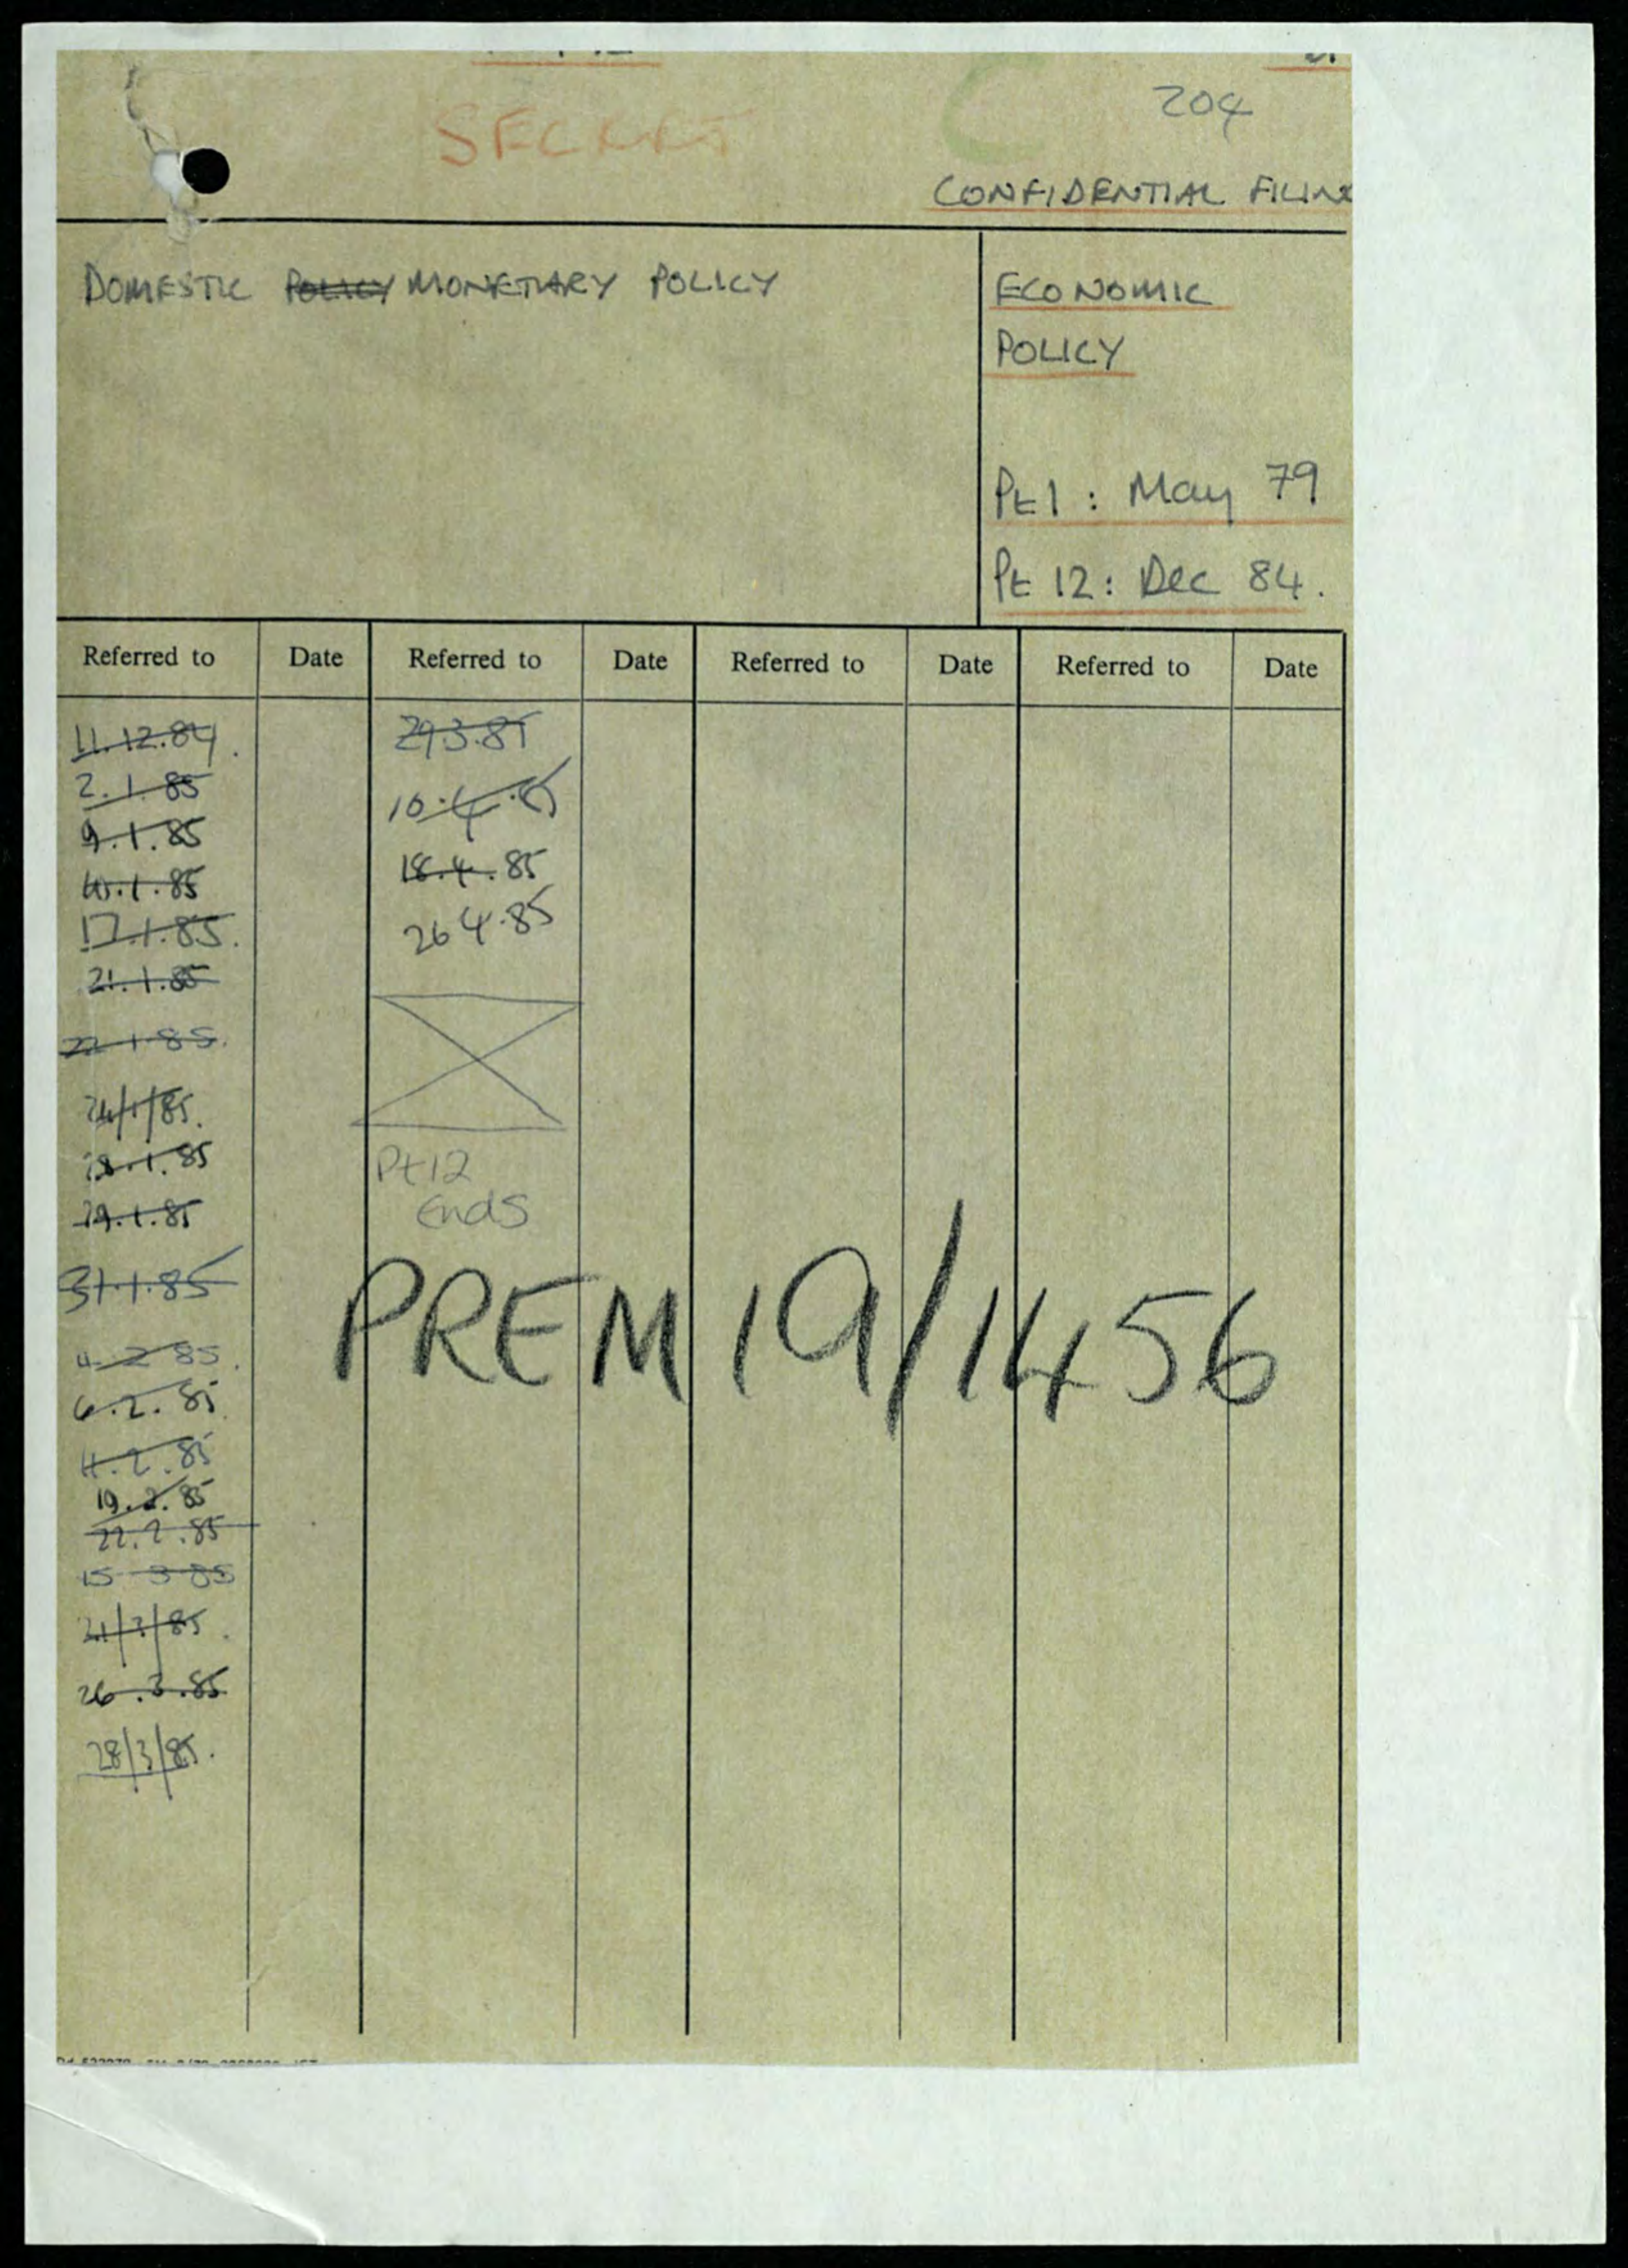 SECRET
204
CONFIDENTIAL FILING
DOMESTIC POLICY MONETARY POLICY
ECONOMIC
POLICY
Pt 1 : May 79
Pt 12 : Dec 84.
Referred to Date Referred to Date Referred to Date Referred to Date
11.12.84. 29.3.85
2.1.85 10.4.85
9.1.85 18.4.85
10.1.85 26 4.85
17.1.85.
21.1.85
22 1 85.
24/1/85.
28.1.85
29.1.85
31.1.85
4 2 85.
6.2.85
11.2.85
19.2.85
22.2.85
15 3 85
21/3/85.
26.3.85
28/3/85.
Pt 12
Ends
PREM 19/1456